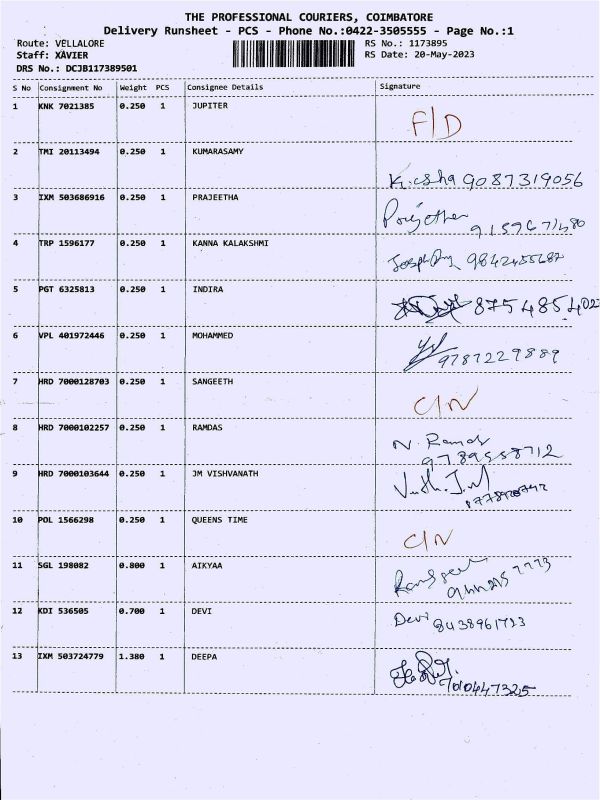 THE PROFESSIONAL COURIERS, COIMBATORE
Delivery Runsheet - PCS - Phone No.:0422-3505555 - Page No.:1
Route: VELLALORE RS No.: 1173895
Staff: XAVIER RS Date: 20-May-2023
DRS No.: DCJB117389501
S No Consignment No Weight PCS Consignee Details Signature
1 KNK 7021385 0.250 1 JUPITER
F/D
2 TMI 20113494 0.250 1 KUMARASAMY
9087319056
3 IXM 503686916 0.250 1 PRAJEETHA
4 TRP 1596177 0.250 1 KANNA KALAKSHMI
9842455687
5 PGT 6325813 0.250 1 INDIRA
8754854022
6 VPL 401972446 0.250 1 MOHAMMED
9787229889
7 HRD 7000128703 0.250 1 SANGEETH
C/N
8 HRD 7000102257 0.250 1 RAMDAS
N. Ramds
9789558712
9 HRD 7000103644 0.250 1 JM VISHVANATH
10 POL 1566298 0.250 1 QUEENS TIME
C/N
11 SGL 198082 0.800 1 AIKYAA
12 KDI 536505 0.700 1 DEVI
Devi 8438961723
13 IXM 503724779 1.380 1 DEEPA
7010447325